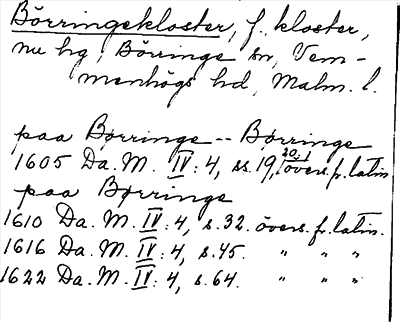 Börringekloster, f. kloster,
nu hg, Börringe sn, Vem-
menhögs hd, Malm. l.
paa Børringe -- Børringe
1605 Da. M. IV: 4, ss. 19, 20, övers. fr. latin.
paa Børringe
1610 Da. M. IV: 4, s. 32. övers. fr. latin.
1616 Da. M. IV: 4, s. 45. " " "
1622 Da. M. IV: 4, s. 64. " " "